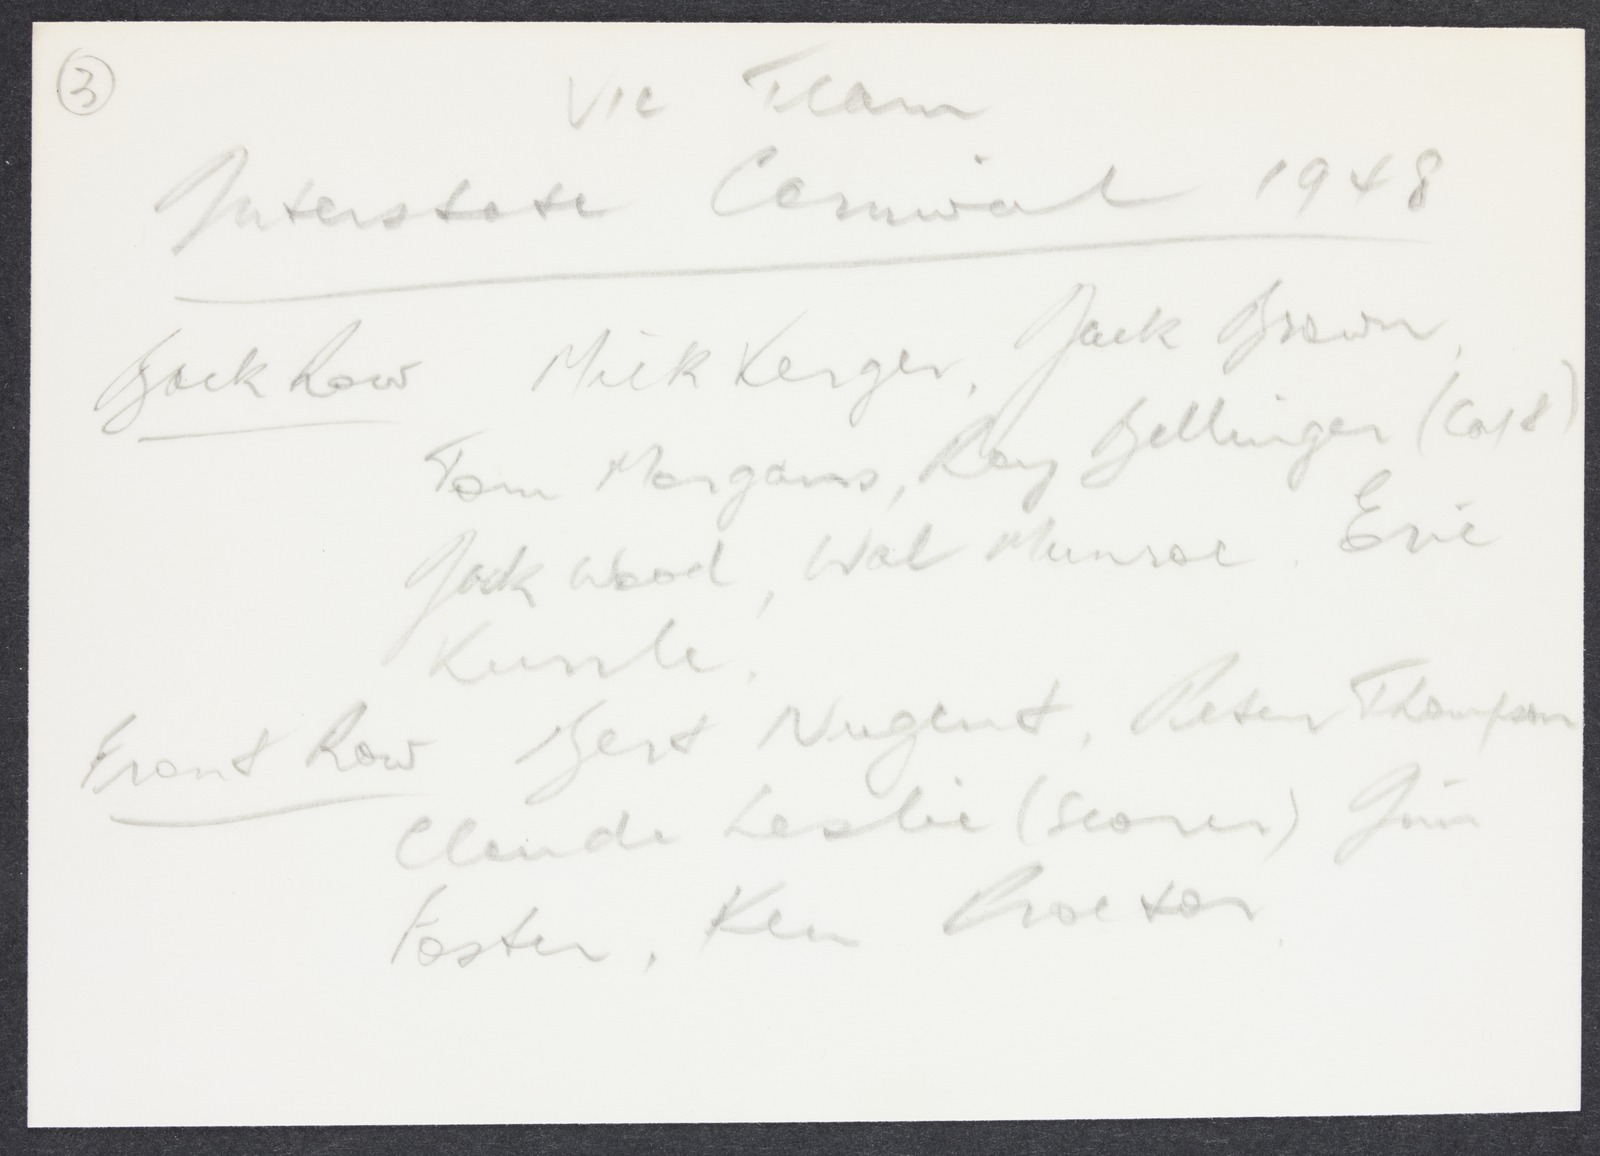 3
Vic Team
Interstate Carnival 1948
Back Row Mick Kerger, Jack Brown,
Tom Morgans, Ray Bellinger (Capt)
Jack Wood, Wal Munroe. Eric
Front Row Bert Nugent, Peter Thompson
Claude Leslie (Scorer) Jim
Foster, Ken Proctor.